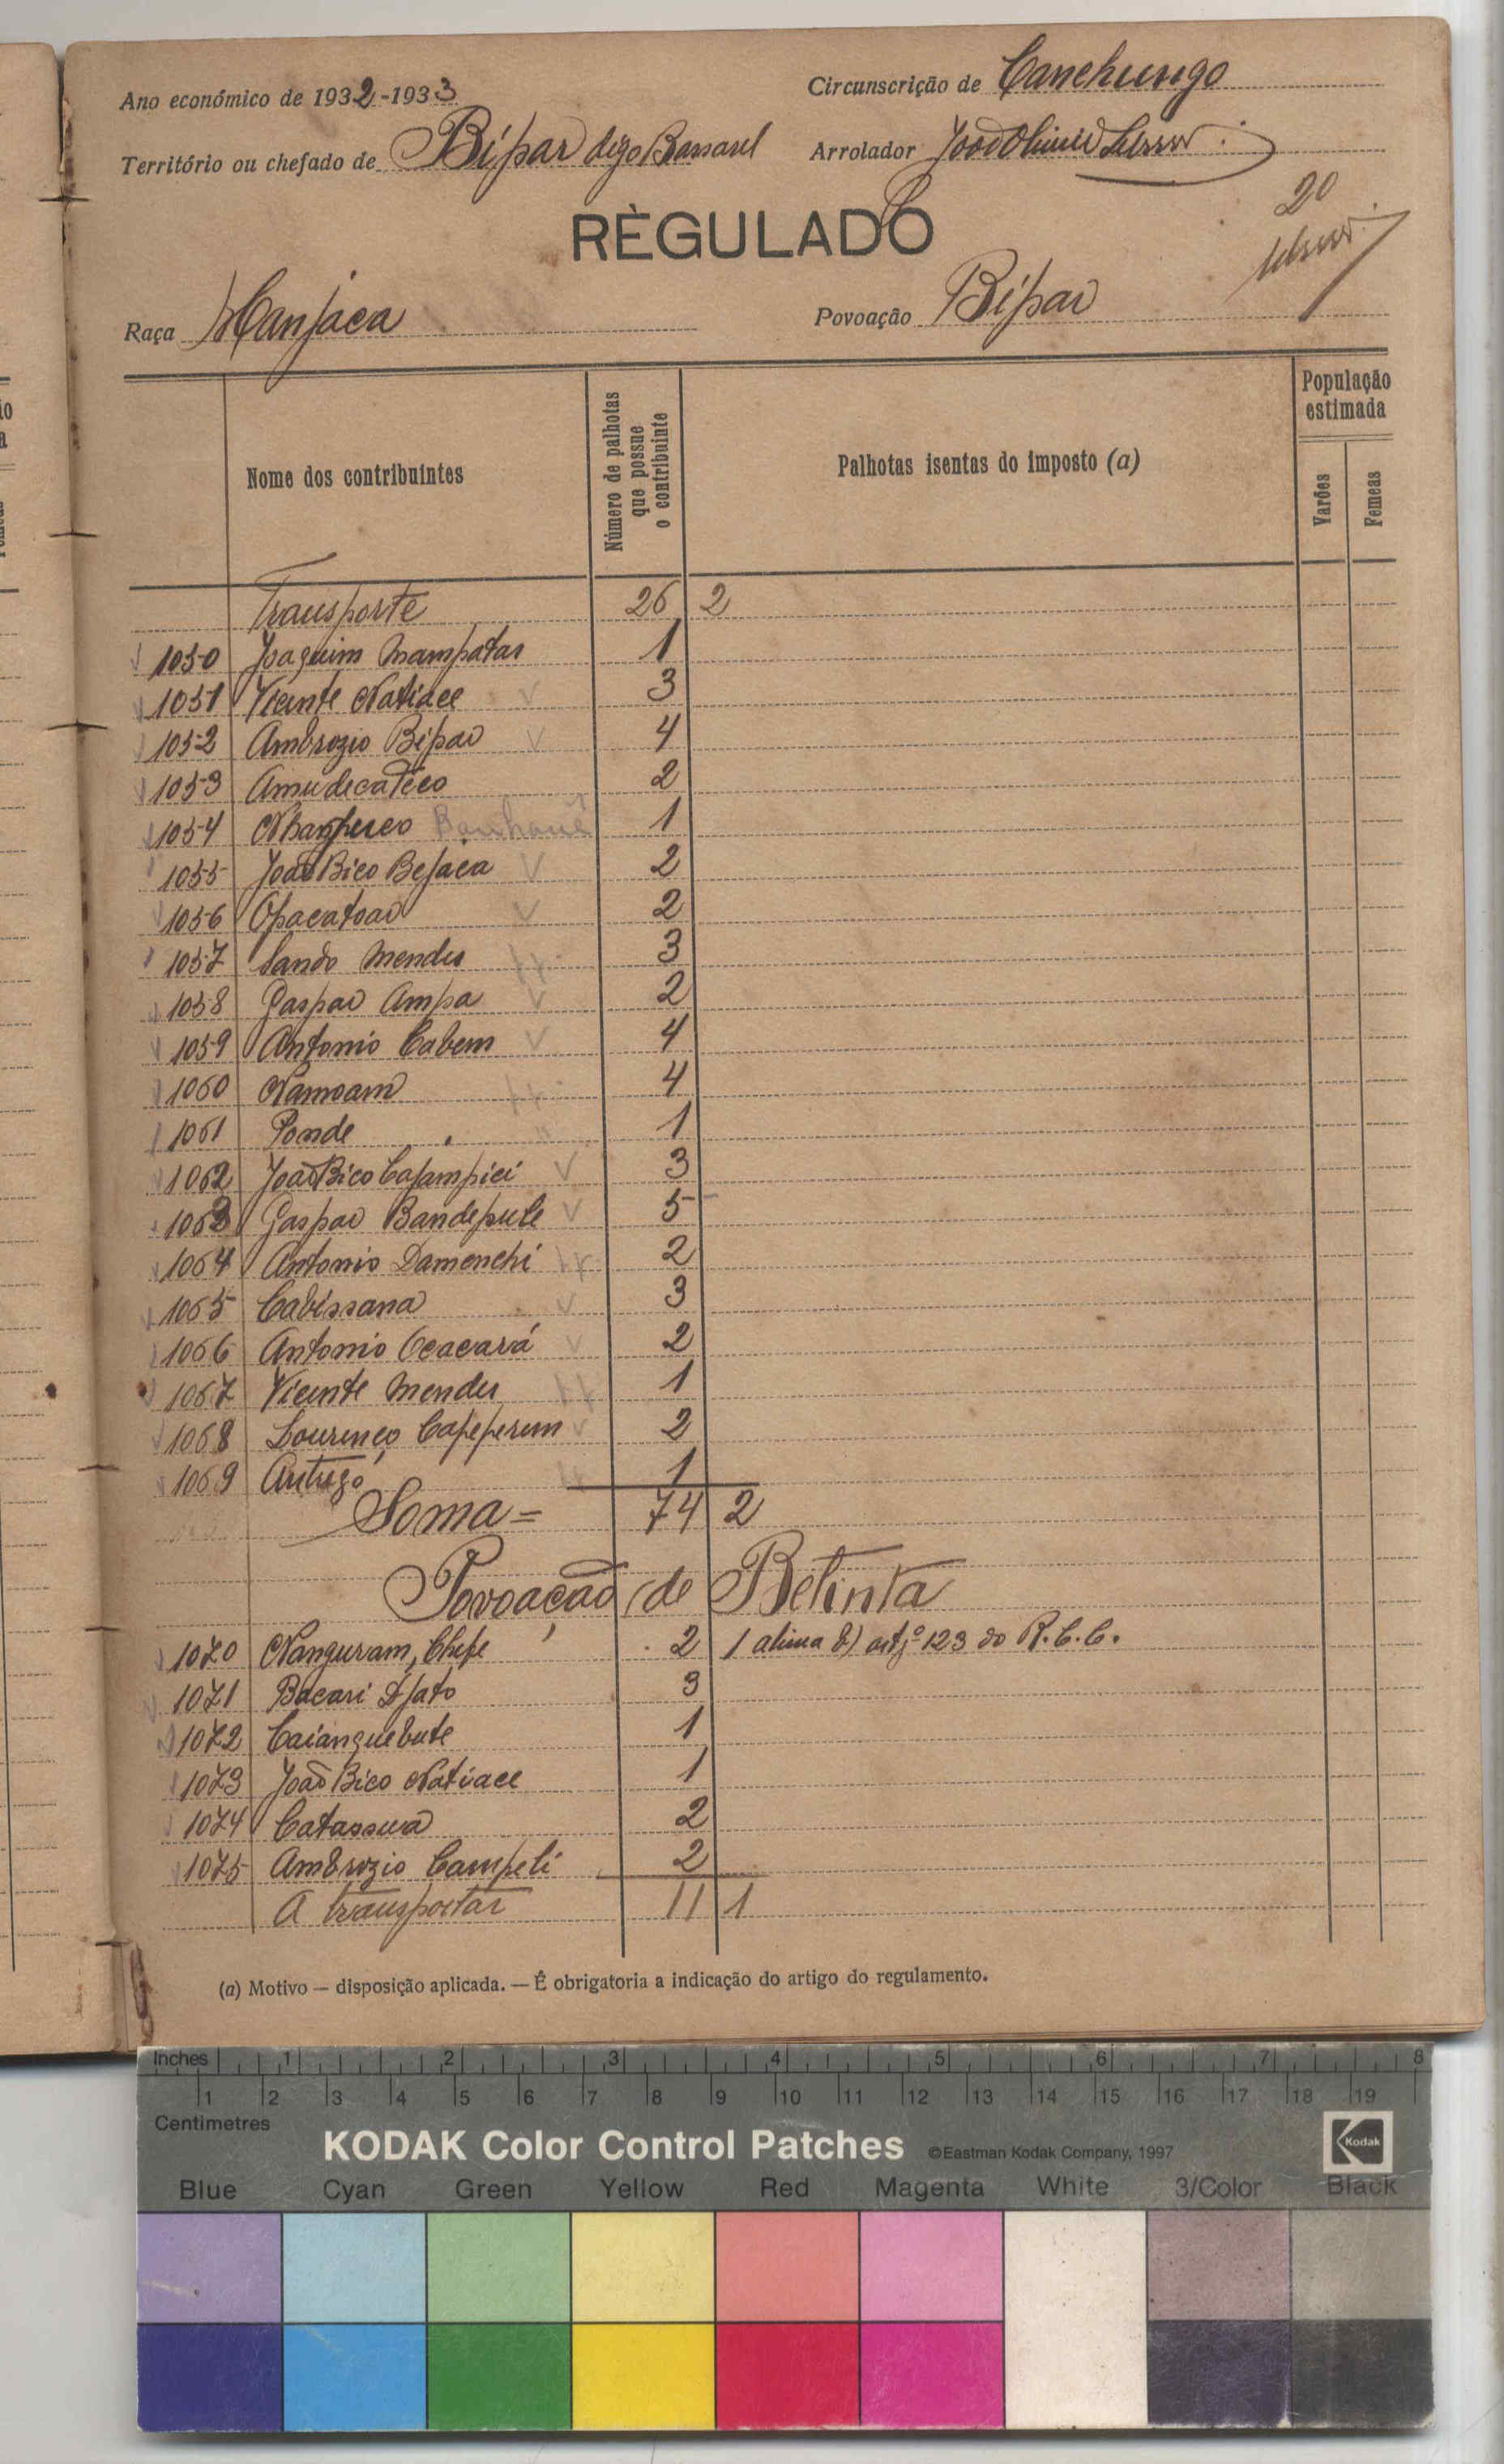 Ano económico de 1932-1933
Circunscrição de Canchungo
Território ou chefado de Bípar digo Bassarel
Arrolador João
RÈGULADO
20
Raça Manjaca
Povoação Bípar
Nome dos contribuintes
Número de palhotas que possue o contribuinte
Palhotas isentas do imposto (a)
População estimada
Varões
Femeas
Transporte 26 2
1050 Joaquim Mampatas 1
1051 Vicente Natiace 3
1052 Ambrozio Bípar 4
1053 Amudecatico 2
1054 1
1055 João Bico Bejaca 2
1056 Opacatoar 2
1057 Sando Mendes 3
1058 Gaspar Ampa 2
1059 Antonio Cabem 4
1060 Namoam 4
1061 Ponde 1
1062 João Bico Cajampici 3
1063 Gaspar Bandepule 5
1064 Antonio Damenchi 2
1065 Cabissana 3
1066 Antonio Ocacará 2
1067 Vicente Mendes 1
1068 Lourenço Capeperem 2
1069 1
Soma = 74 2
Povoação de Betinta
1070 Nanguram, Chefe 2 1 alinea b) artjº 123 do R.C.C.
1071 Bacari Djato 3
1072 Caianguebute 1
1073 João Bico Natiace 1
1074 Catassua 2
1075 Ambrozio Campeli 2
A transportar 11 1
(a) Motivo — disposição aplicada. — É obrigatoria a indicação do artigo do regulamento.
Inches 1 2 3 4 5 6 7 8
1 2 3 4 5 6 7 8 9 10 11 12 13 14 15 16 17 18 19
Centimetres
KODAK Color Control Patches ©Eastman Kodak Company, 1997 Kodak
Blue Cyan Green Yellow Red Magenta White 3/Color Black